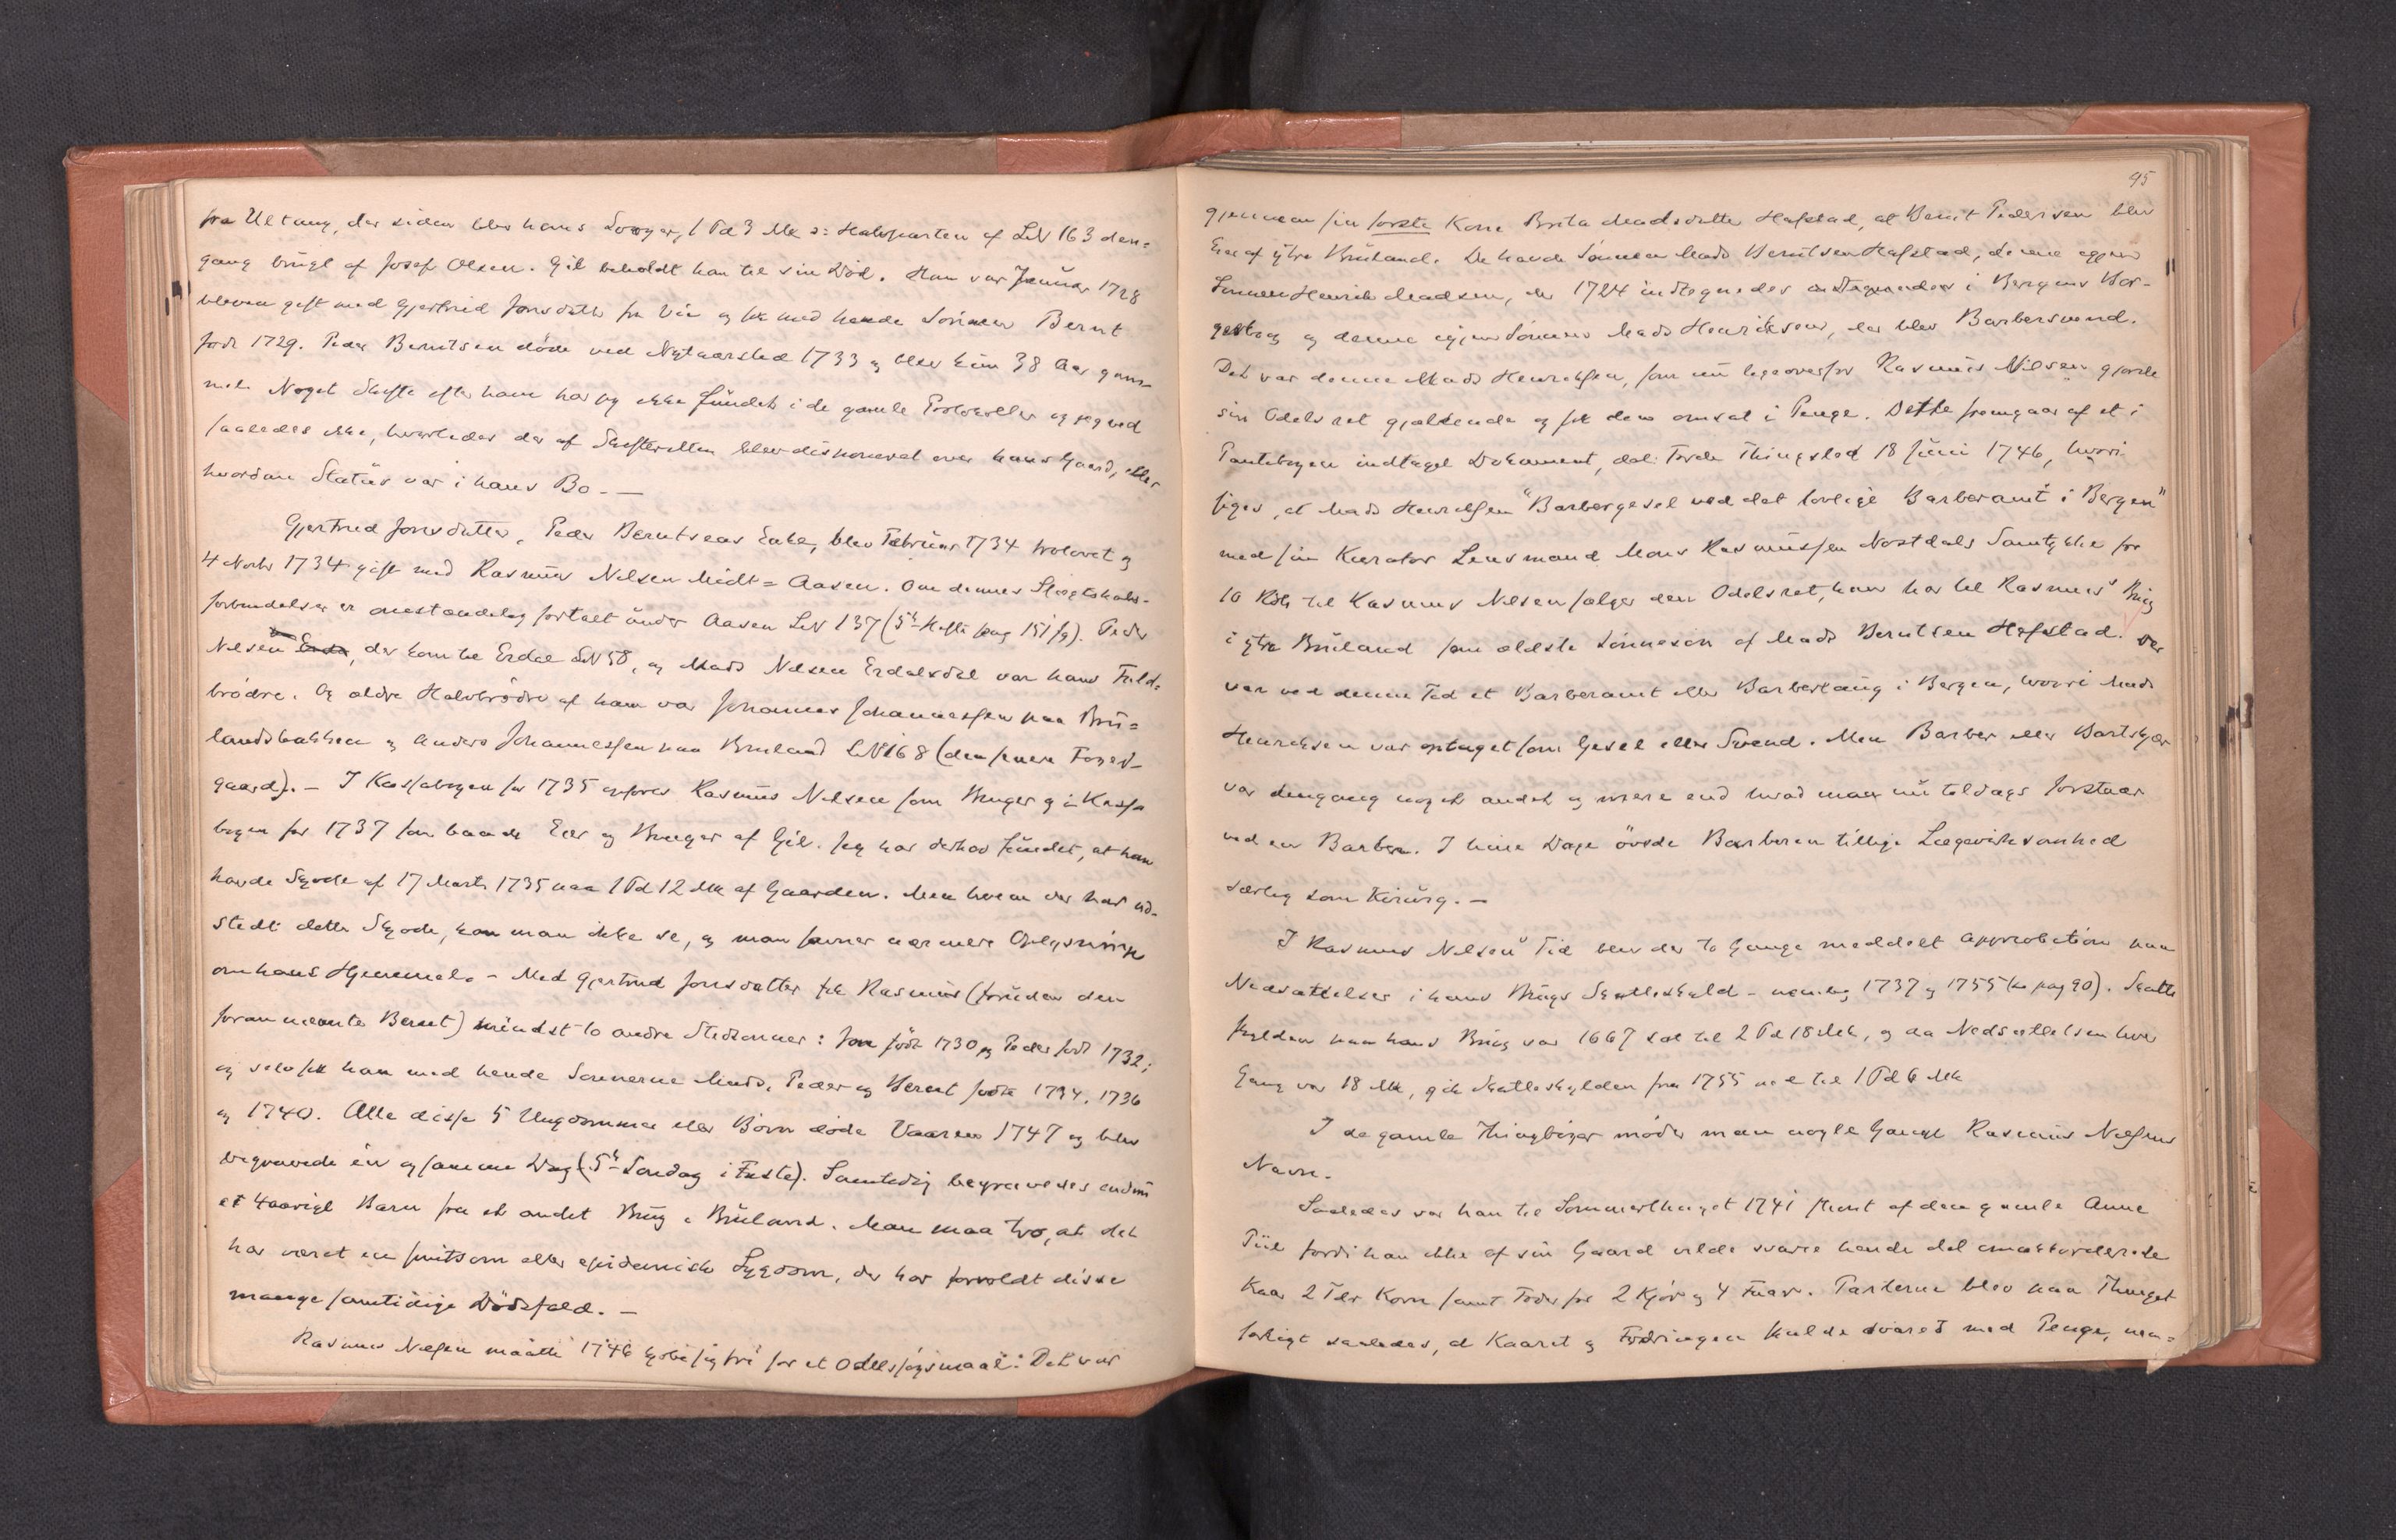 fra Ultang, der siden blev hans Svoger, 1 Pd 3 Mk ɔ: Halvparten af LN 163 den=
gang brugt af Josef Olsen. Gil beholdt han til sin Död. Han var Januar 1728
bleven gift med Gjertrud Jonsdatter fra Vie og fik med hende Sönnen Bernt
född 1729. Peder Berntsen döde ved Nytaarstid 1733 og blev kun 38 Aar gam-
mel. Noget Skifte efter ham har jeg ikke fundet i de gamle Protokoller og jeg ved
saaledes ikke, hvorledes der af Skifteretten blev disponeret over hans Gaard, eller
hvordan Status var i hans Bo. —
Gjertrud Jonsdatter, Peder Berntsens Enke, blev Februar 1734 trolovet og
4 Novbr 1734 gift med Rasmus Nilsen Midt=Aasen. Om dennes Slegtskabs-
forbindelser er omstændelig fortalt under Aasen LN 137 (5te Hefte pag 151 fg). Peder
Nilsen, der kom til Erdal LN 58, og Mads Nilsen Erdalsdal var hans Fuld=
brödre. Og ældre Halvbrödre af ham var Johannes Johannessen paa Bru=
landsbakken og Anders Johannessen paa Bruland LN 168 (den senere Foged-
gaard). — I Kassabogen for 1735 opföres Rasmus Nilsen som Bruger og i Kassa
bogen for 1737 som baade Eier og Bruger af Gil. Jeg har derhos fundet, at han
havde Skjöde af 17 Marts 1735 paa 1 Pd 12 Mk af Gaarden. Men hvem der har ud-
stedt dette Skjöde, kan man ikke se, og man savner nærmere Oplysning
om hans Hjemmel. — Med Gjertrud Jonsdatter fik Rasmus (foruden den
forannævnte Bernt) mindst to andre Stedsönner: Jon född 1730 og Peder född 1732;
og selv fik han med hende Sönnerne Mads, Peder og Bernt födte 1734, 1736
og 1740. Alle disse 5 Ungdommer eller Börn döde Vaaren 1747 og blev
begravede en og samme Dag (5te Söndag i Faste). Samtidig begravedes endnu
et 4aarigt Barn fra et andet Brug i Bruland. Man maa tro, at det
har været en smitsom eller epidemisk Sygdom, der har forvoldt disse
mange samtidige Dödsfald. —
Rasmus Nilsen maatte 1746 kjöbe sig fri for et Odelssögsmaal: Det var
95
gjennem sin förste Kone Brita Madsdatter Hafstad, at Bernt Pedersen blev
Eier af ytre Bruland. De havde Sönnen Mads Berntsen Hafstad, denne igjen
Sönnen Henrik Madsen, der 1724 indtegnedes i Bergens Bor-
gerbog og denne igjen Sönnen Mads Henriksen, der blev Barbersvend.
Det var denne Mads Henriksen, som nu ligeoverfor Rasmus Nilsen gjorde
sin Odelsret gjældende og fik den omsat i Penge. Dette fremgaar af et i
Pantebogen indtaget Dokument, dat. Förde Thingsted 18 Juni 1746, hvori
siges, at Mads Henriksen "Barbergesel ved det lovlige Barberamt i Bergen"
med sin Kurator Lensmand Mons Rasmussen Nostdals Samtykke for
10 Rdlr til Rasmus Nilsen sælger den Odelsret, han har til Rasmus' Brug
i ytre Bruland som ældste Sönnesön af Mads Berntsen Hafstad. Der
var ved denne Tid et Barberamt eller Barberlaug i Bergen, hvori Mads
Henriksen var optaget som Gesel eller Svend. Men Barber eller Bartskjær
var dengang noget andet og mere end hvad man nu tildags forstaar
ved en Barber. I hine Dage övede Barberen tillige Lægevirksomhed
særlig som Kirurg. —
I Rasmus Nilsens Tid blev der to Gange meddelt Approbation paa
Nedsættelser i hans Brugs Skatteskyld – nemlig 1737 og 1755 (se pag 90). Skatte
skylden paa hans Brug var 1667 sat til 2 Pd 18 Mk, og da Nedsættelsen hver
Gang var 18 Mk, gik Skatteskylden fra 1755 ned til 1 Pd 6 Mk
I de gamle Thingböger möder man nogle Gange Rasmus Nilsens
Navn.
Saaledes var han til Sommerthinget 1741 stevnt af den gamle Anne
Giil fordi han ikke af sin Gaard vilde svare hende det
Kaar 2 Tdr Korn samt Foder for 2 Kjör og 4 Faar. Parterne blev paa Thinget
forligt saaledes, at Kaaret og Fodringen skulde svares med Penge, nem=